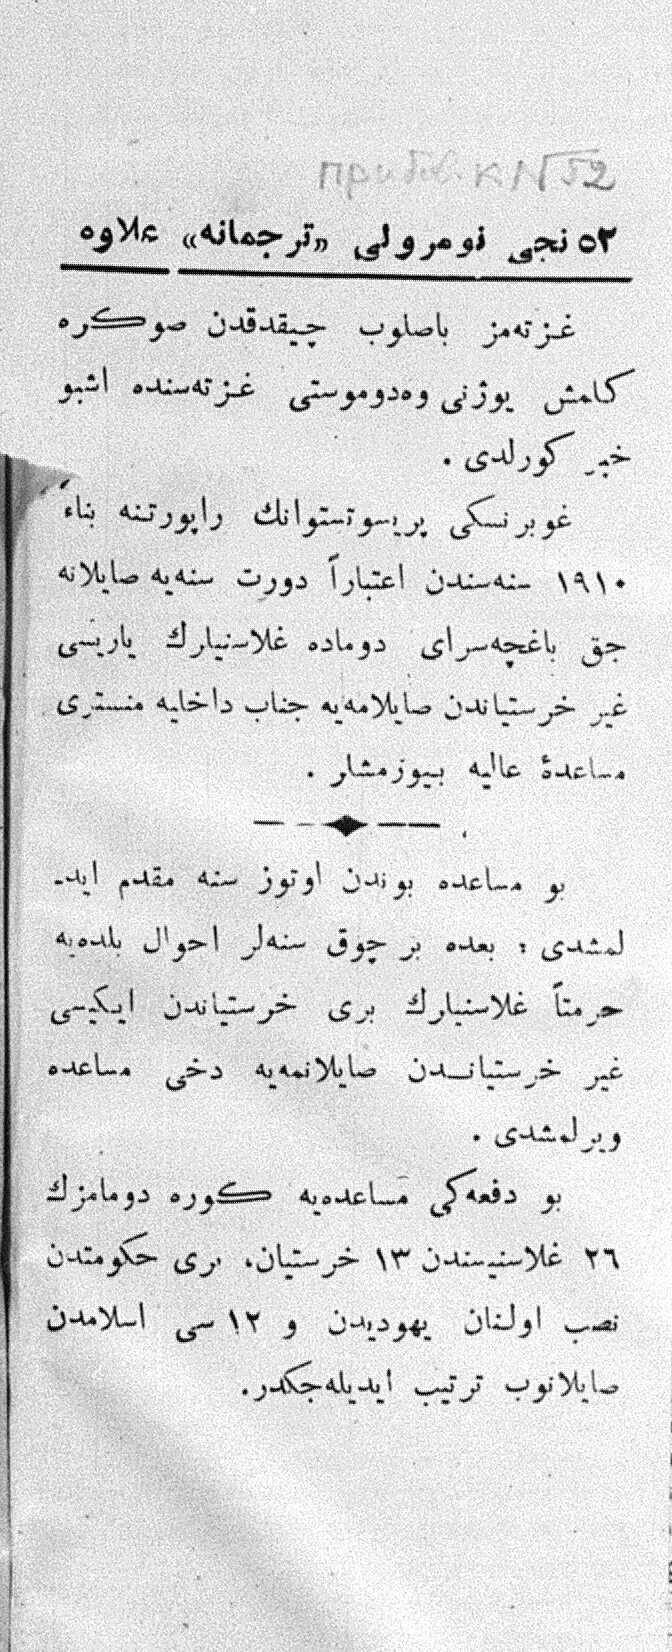 прибав. к № 52
٥٢ نجی نومرولی «ترجمانه» علاوه
غـزته‌مز باصلوب چیقدقدن صوڭره
كامش یوژنی وه‌دوموستی غـزته‌سنده اشبو
خبر كورلدی .
غوبرنسكی پریسوتستوانك راپورتنه بناءً
١٩١٠ سنه‌سندن اعتباراً دورت سنه‌یه صایلانه
جق باغچه‌سرای دوماده غلاسنیلرك یاریسی
غیر خرستیاندن صایلامه‌یه جناب داخلیه منستری
مساعدۀ عالیه بیوزمشلر .
بو مساعده بوندن اوتوز سنه مقدم ایدـ
لمشدی ؛ بعده بر چوق سنه‌لر احوال بلده‌یه
حرمتاً غلاسنیلرك بری خرستیاندن ایكیسی
غیر خرستیانـدن صایلانمه‌یه دخی مساعده
ویرلمشدی .
بو دفعه‌كی مساعده‌یه كوره دومامزك
٢٦ غلاسنیسندن ١٣ خرستیان، بری حكومتدن
نصب اولنان یهودیدن و ١٢ سی اسلامدن
صایلانوب ترتیب ایدیله‌جكدر.